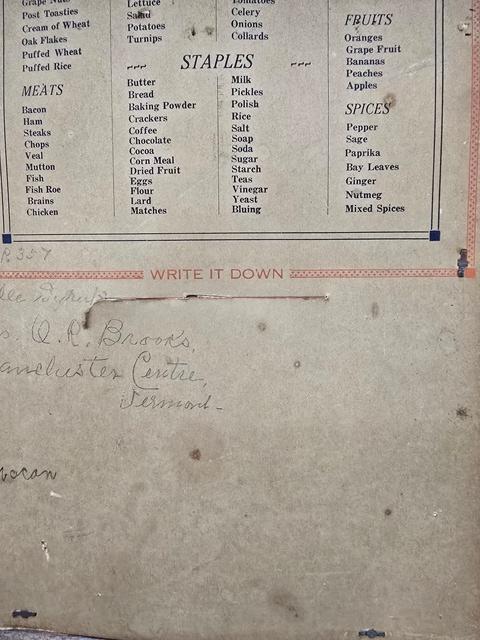 Grape Nuts
Post Toasties
Cream of Wheat
Oak Flakes
Puffed Wheat
Puffed Rice
MEATS
Bacon
Ham
Steaks
Chops
Veal
Mutton
Fish
Fish Roe
Brains
Chicken
Lettuce
Salad
Potatoes
Turnips
Tomatoes
Celery
Onions
Collards
STAPLES
Butter
Bread
Baking Powder
Crackers
Coffee
Chocolate
Cocoa
Corn Meal
Dried Fruit
Eggs
Flour
Lard
Matches
Milk
Pickles
Polish
Rice
Salt
Soap
Soda
Sugar
Starch
Teas
Vinegar
Yeast
Bluing
FRUITS
Oranges
Grape Fruit
Bananas
Peaches
Apples
SPICES
Pepper
Sage
Paprika
Bay Leaves
Ginger
Nutmeg
Mixed Spices
R. 357
WRITE IT DOWN
s. O. R. Brooks,
anchester Centre,
Vermont-